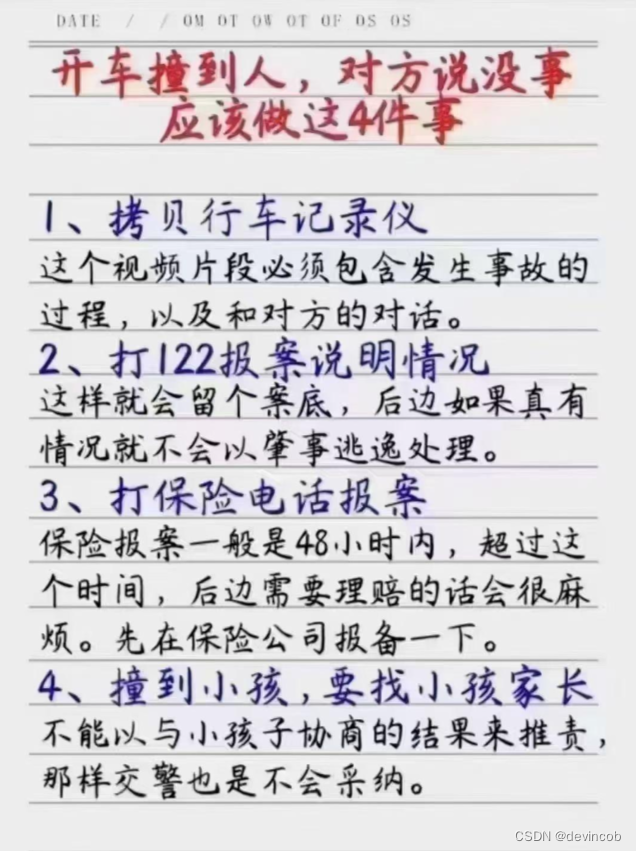 DATE / / OM OT OW OT OF OS OS
开车撞到人，对方说没事
应该做这4件事
1、拷贝行车记录仪
这个视频片段必须包含发生事故的
过程，以及和对方的对话。
2、打122报案说明情况
这样就会留个案底，后边如果真有
情况就不会以肇事逃逸处理。
3、打保险电话报案
保险报案一般是48小时内，超过这
个时间，后边需要理赔的话会很麻
烦。先在保险公司报备一下。
4、撞到小孩，要找小孩家长
不能以与小孩子协商的结果来推责，
那样交警也是不会采纳。
CSDN @devincob